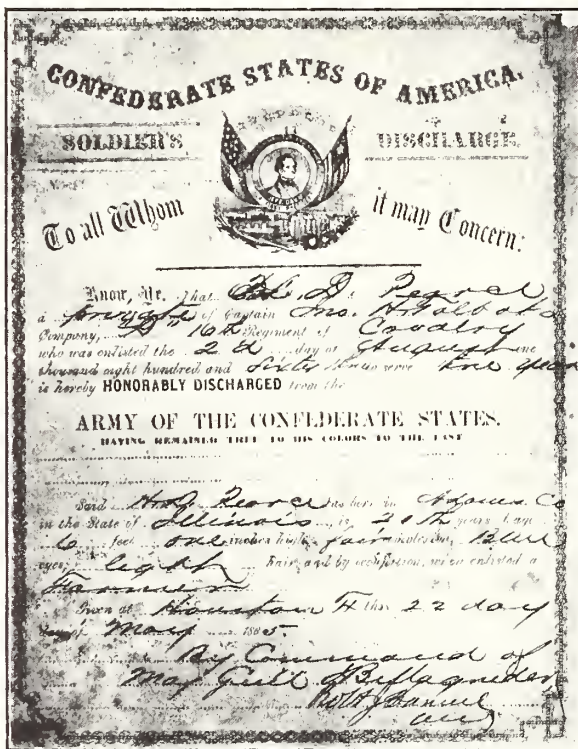 CONFEDERATE STATES OF AMERICA.
SOLDIER'S DISCHARGE.
To all Whom it may Concern:
Know, Ye, That D. Pearce
a private of Captain Jno. H.
Company, "D" 16th Regiment of Cavalry
who was enlisted the 2d day of August one
thousand eight hundred and Sixty to serve years
is hereby HONORABLY DISCHARGED from the
ARMY OF THE CONFEDERATE STATES.
HAVING REMAINED TRUE TO HIS COLORS TO THE LAST
Said H. D. Pearce was born in Adams Co
in the State of Illinois is years of age
6 feet one inches high, fair complexion, Blue
eyes, light hair, and by occupation, when enlisted a
Farmer
Given at Houston this 22 day
of May 1865.
By Command of
Maj Genl